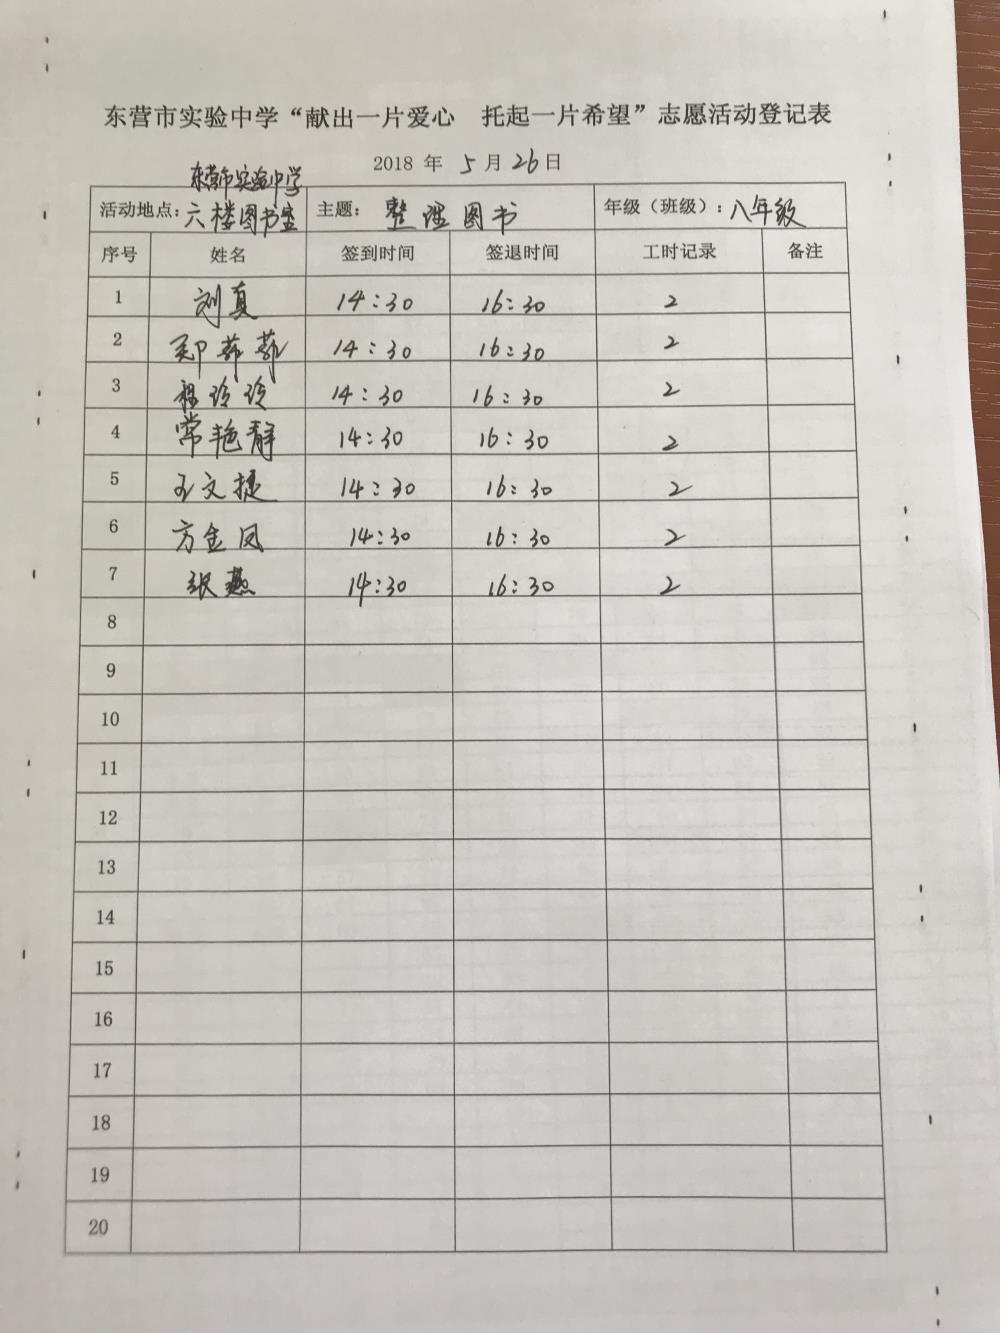 东营市实验中学“献出一片爱心 托起一片希望”志愿活动登记表
2018 年 5 月 26 日
东营市实验中学
活动地点：六楼图书室 主题： 整理图书 年级（班级）：八年级
序号 姓名 签到时间 签退时间 工时记录 备注
1 刘真 14:30 16:30 2
2 郑菲菲 14:30 16:30 2
3 程玲玲 14:30 16:30 2
4 常艳静 14:30 16:30 2
5 王文捷 14:30 16:30 2
6 方金凤 14:30 16:30 2
7 张燕 14:30 16:30 2
8
9
10
11
12
13
14
15
16
17
18
19
20